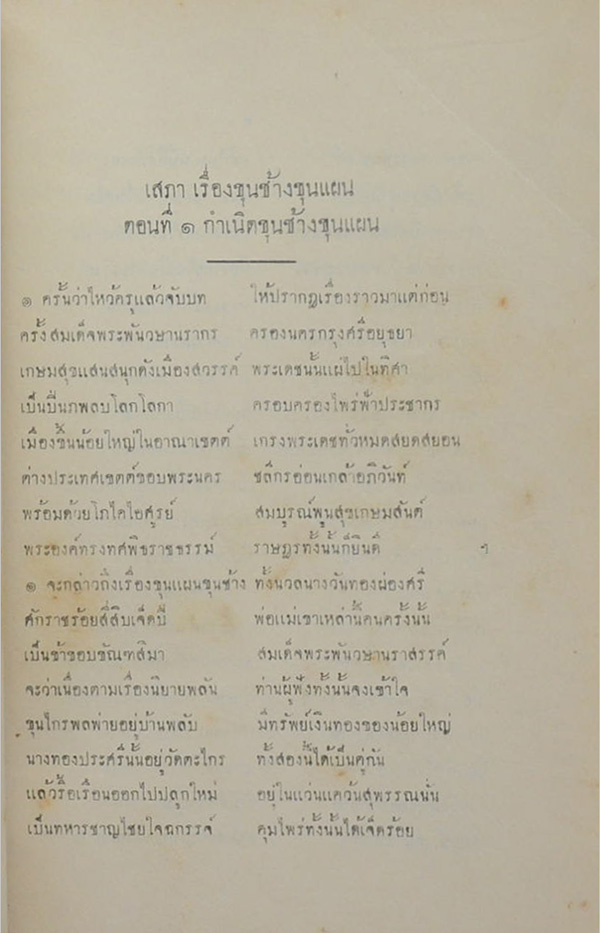 เสภา เรื่องขุนช้างขุนแผน
ตอนที่ ๑ กำเนิดขุนช้างขุนแผน
๏ ครั้นว่าไหว้ครูแล้วจับบท ให้ปรากฏเรื่องราวมาแต่ก่อน
ครั้งสมเด็จพระพันวษานรากร ครองนครกรุงศรีอยุธยา
เกษมสุขแสนสนุกดังเมืองสวรรค์ พระเดชนั้นแผ่ไปในทิศา
เป็นปิ่นภพลบโลกโลกา ครอบครองไพร่ฟ้าประชากร
เมืองขึ้นน้อยใหญ่ในอาณาเขตต์ เกรงพระเดชทั่วหมดสยดสยอน
ต่างประเทศเขตต์ขอบพระนคร ชลีกรอ่อนเกล้าอภิวันท์
พร้อมด้วยโภไคไอศูรย์ สมบูรณ์พูนสุขเกษมสันต์
พระองค์ทรงทศพิธราชธรรม์ ราษฎรทั้งนั้นก็ยินดี ฯ
๏ จะกล่าวถึงเรื่องขุนแผนขุนช้าง ทั้งนวลนางวันทองผ่องศรี
ศักราชร้อยสี่สิบเจ็ดปี พ่อแม่เขาเหล่านี้คนครั้งนั้น
เป็นข้าขอบขัณฑสีมา สมเด็จพระพันวษานราสรรค์
จะว่าเนื่องตามเรื่องนิยายพลัน ท่านผู้ฟังทั้งนั้นจงเข้าใจ
ขุนไกรพลพ่ายอยู่บ้านพลับ มีทรัพย์เงินทองของน้อยใหญ่
นางทองประศรีนั้นอยู่วัดตะไกร ทั้งสองนี้ได้เป็นคู่กัน
แล้วรื้อเรือนออกไปปลูกใหม่ อยู่ในแว่นแคว้นสุพรรณนั่น
เป็นทหารชาญไชยใจฉกรรจ์ คุมไพร่ทั้งนั้นได้เจ็ดร้อย